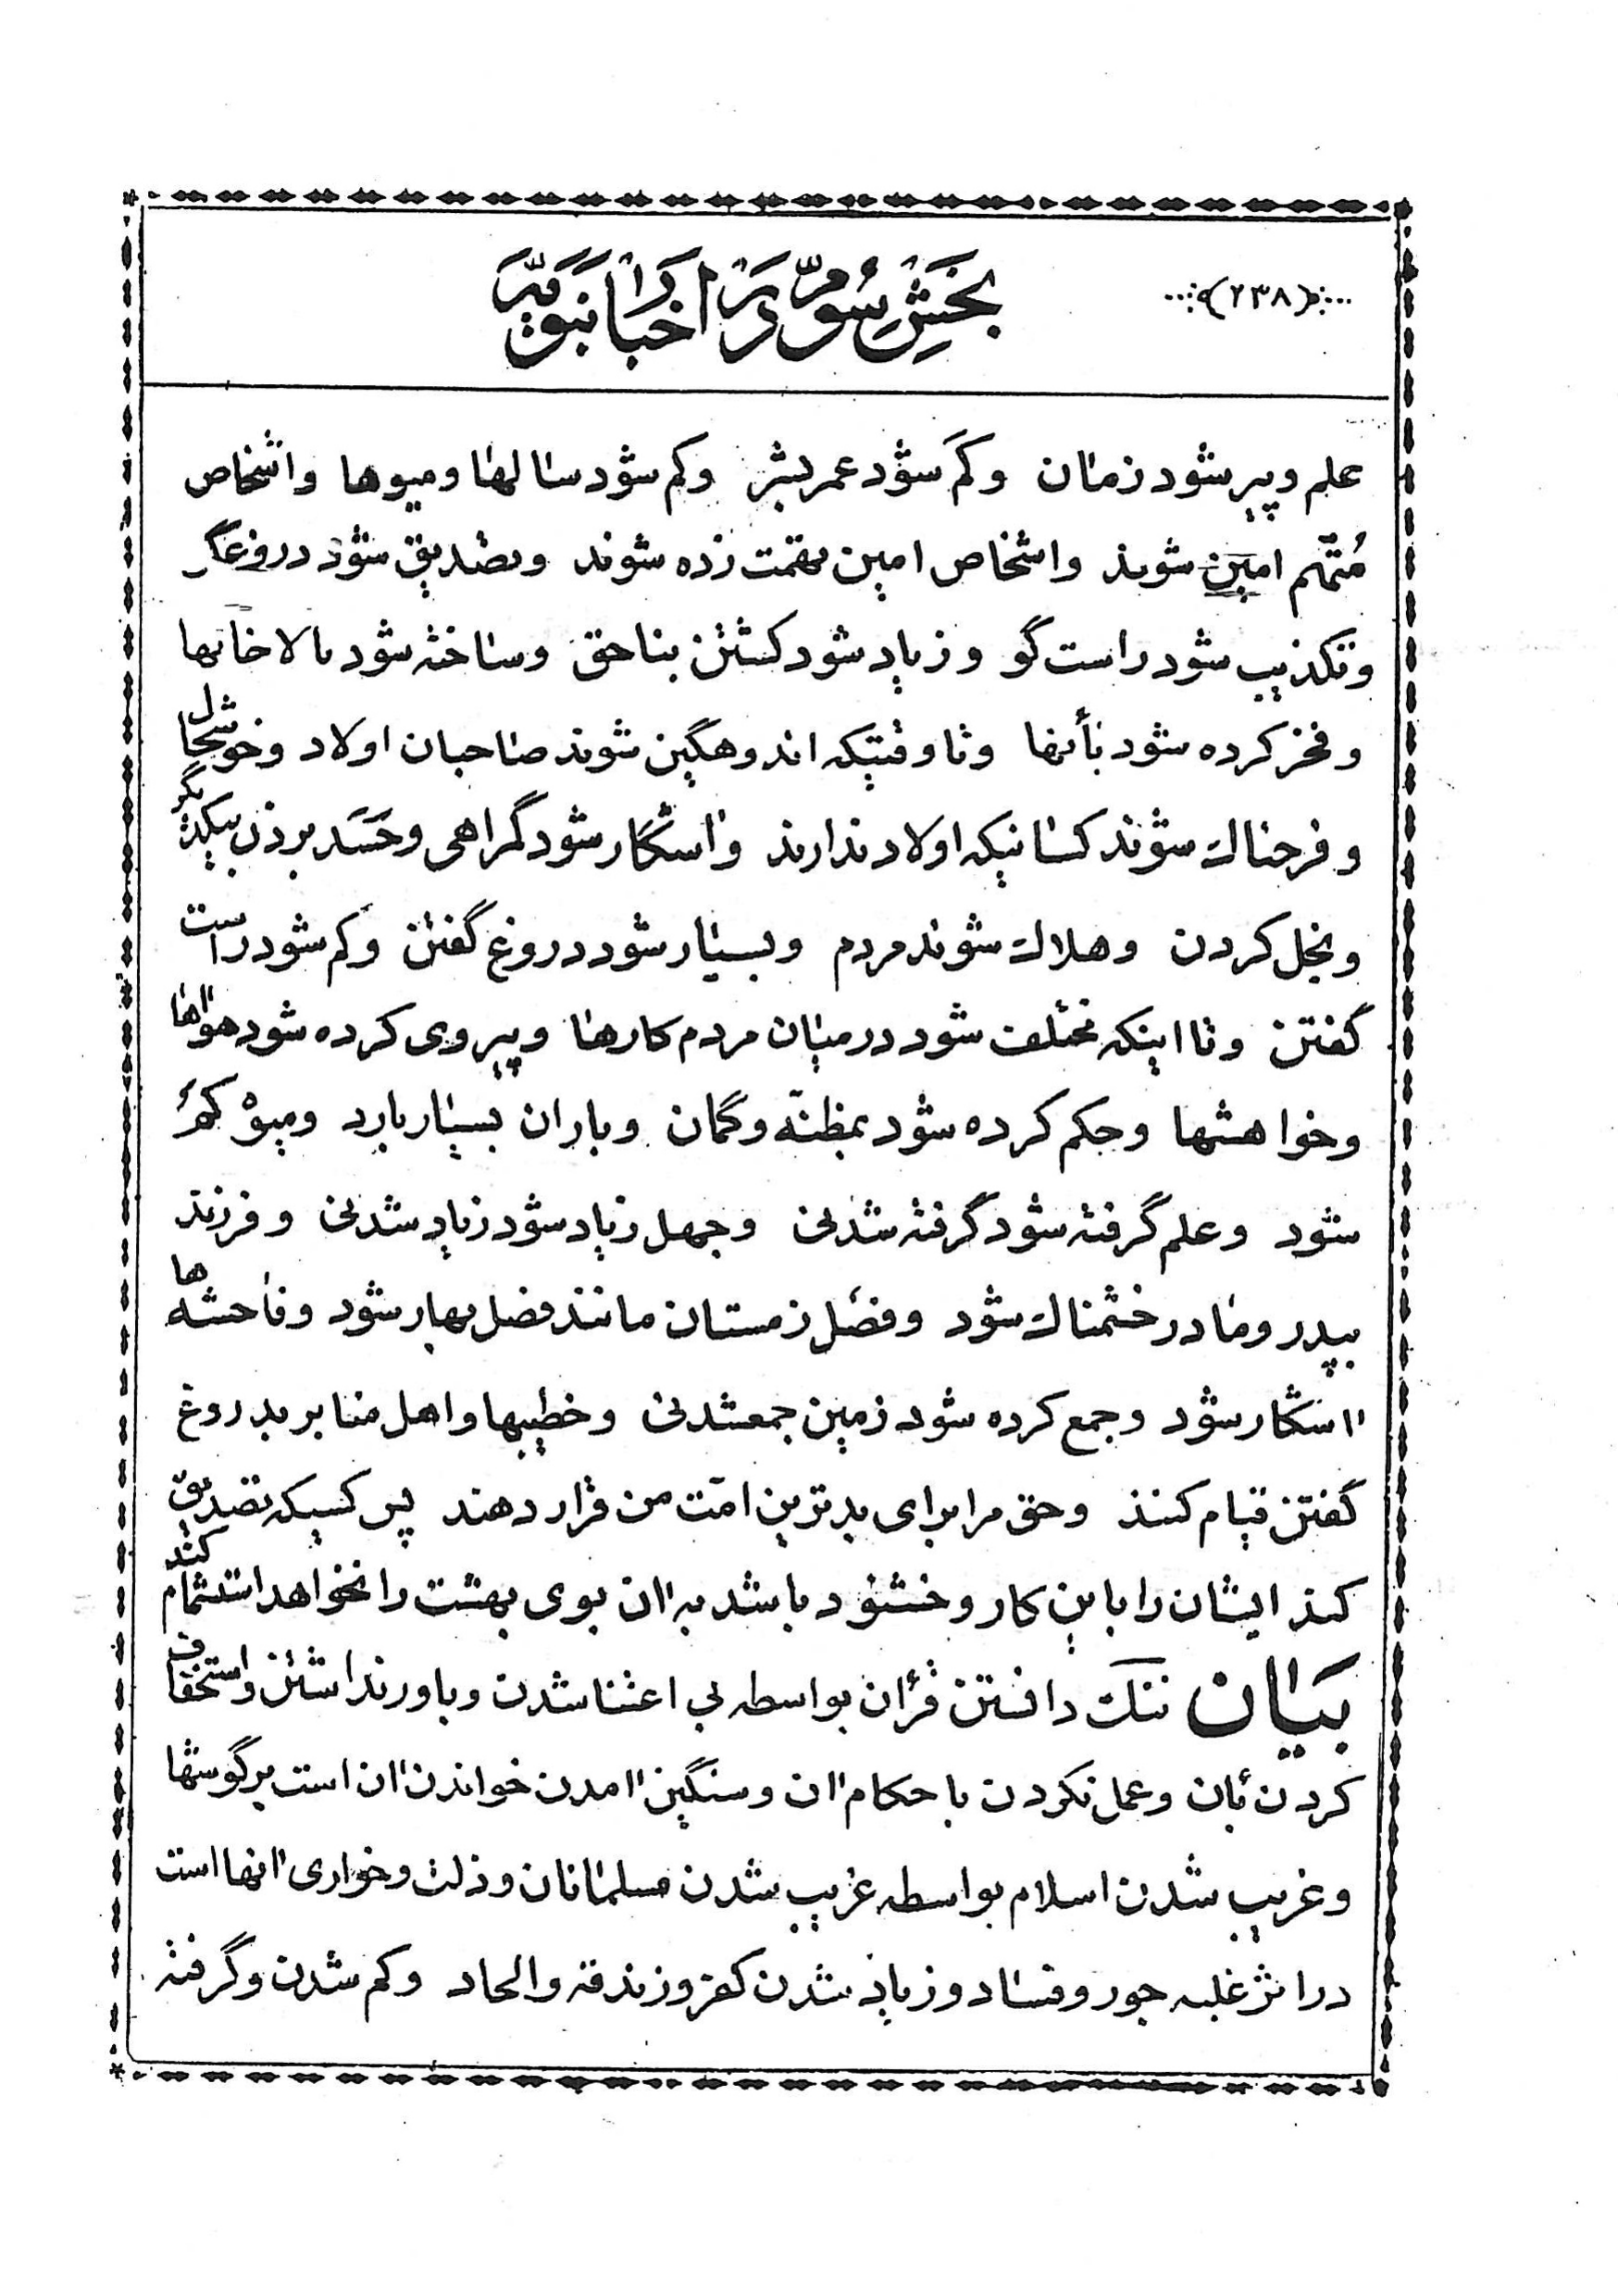 (۲۳۸)
بخش سوم در اخبار نبویه
علم و پیر شود زمان و کم شود عمر بشر و کم شود سالها و میوها و اشخاص
مُتّهم امین شوند و اشخاص امین تهمت زده شوند و تصدیق شود دروغگو
و تکذیب شود راست گو و زیاد شود کشتن بناحق و ساخته شود بالاخانها
و فخر کرده شود بأنها و تا وقتیکه اندوهگین شوند صاحبان اولاد و خوشحال
و فرحناک شوند کسانیکه اولاد ندارند و اشکار شود گمراهی و حَسَد بردن بیکدیگر
و بخل کردن و هلاک شوند مردم و بسیار شود دروغ گفتن و کم شود راست
گفتن و تا اینکه مختلف شود در میان مردم کارها و پیروی کرده شود هواها
و خواهشها و حکم کرده شود بمظنّه و گمان و باران بسیار بارد و میوه کم
شود و علم گرفته شود گرفته شدنی و جهل زیاد شود زیاد شدنی و فرزند
بپدر و مادر خشمناک شود و فصل زمستان مانند فصل بهار شود و فاحشه ها
آشکار شود و جمع کرده شود زمین جمعشدنی و خطیبها و اهل منابر بدروغ
گفتن قیام کنند و حق مرا برای بدترین امّت من قرار دهند پس کسیکه تصدیق
کند ایشان را باین کار و خشنود باشد به آن بوی بهشت را نخواهد استشمام کند
بَیان ننک دانستن قرآن بواسطه بی اعتنا شدن و باور نداشتن و استخفاف
کردن بآن و عمل نکردن باحکام آن و سنگین آمدن خواندن آن است بر گوشها
و غریب شدن اسلام بواسطه غریب شدن مسلمانان و ذلت و خواری آنها است
در اثر غلبه جور و فساد و زیاد شدن کفر و زندقه و الحاد و کم شدن و گرفته